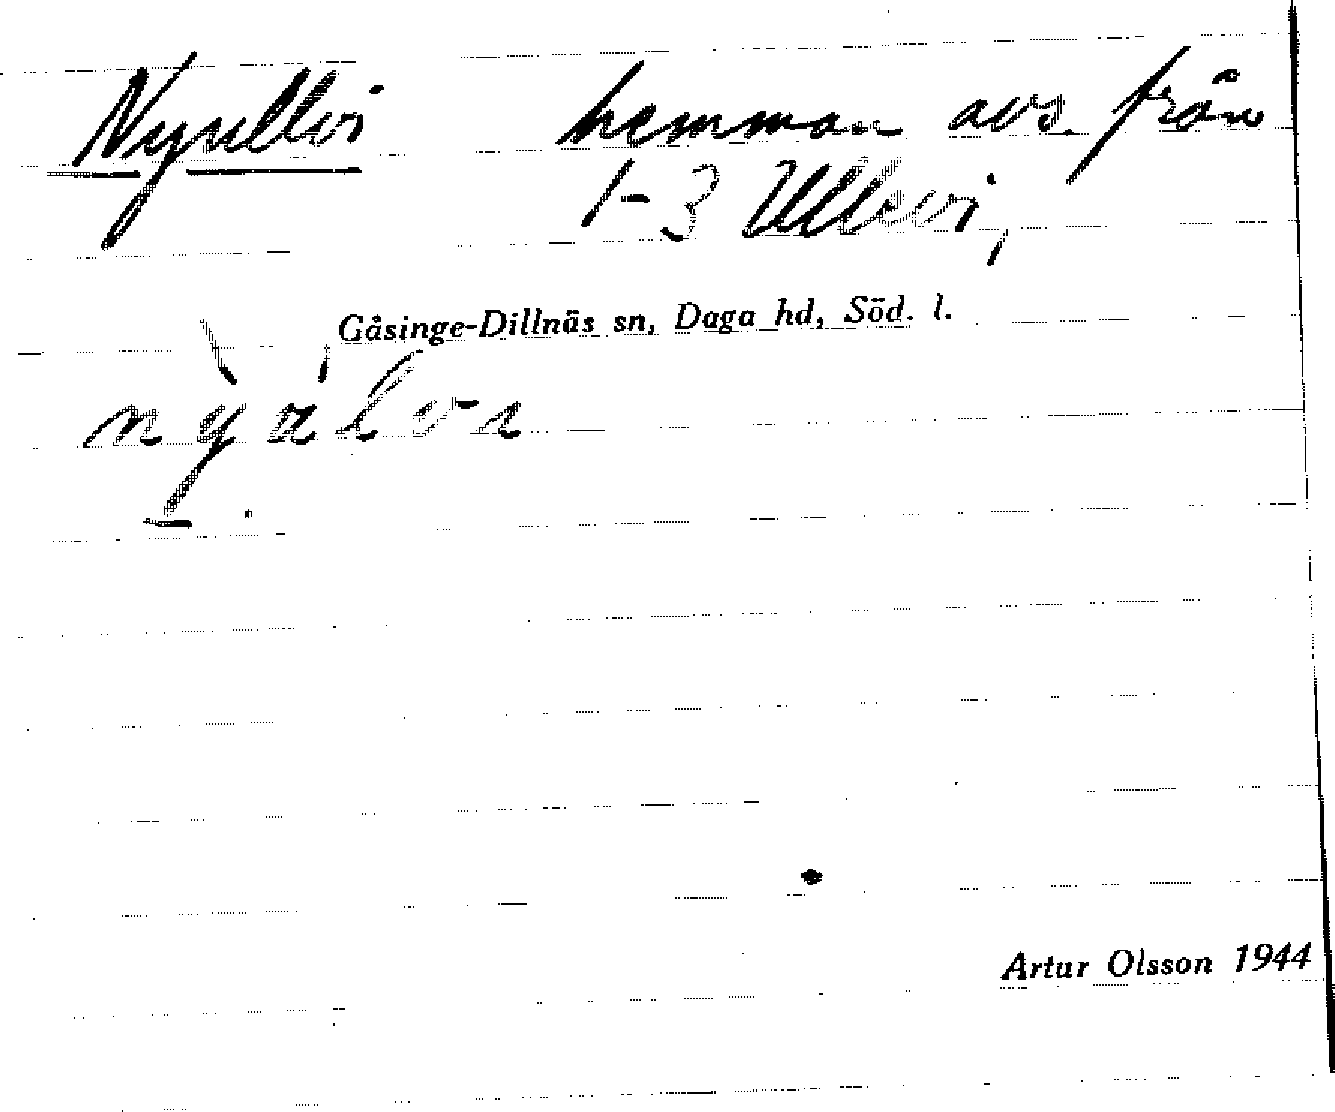 Nyullvi hemman avs. från
1-3 Ullevi,
Gåsinge-Dillnäs sn, Daga hd, Söd. l.
Artur Olsson 1944